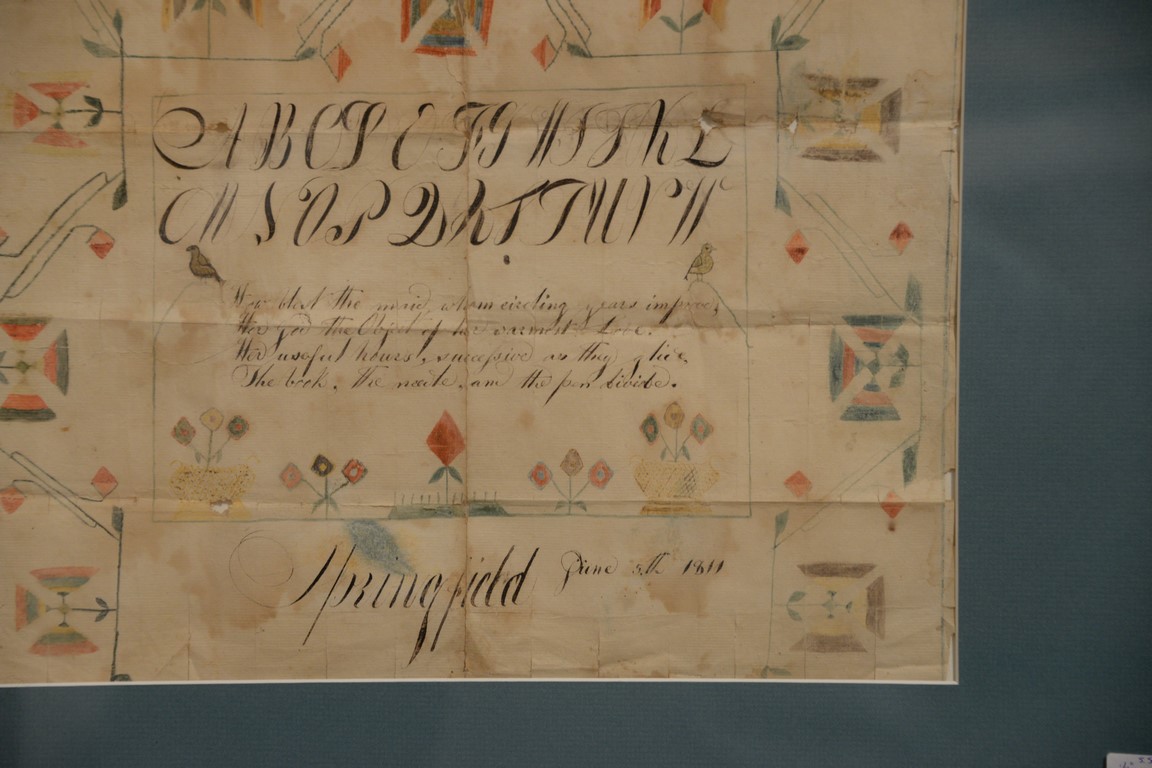 A B C D E F G H I J K L
M N O P Q R S T U V W
How blest the maid whom circling years improve,
Her god the Object of her warmest Love.
Her useful hours, successive as they glide
The book, the neele, and the pen divide.
Springfield June 5th 1811